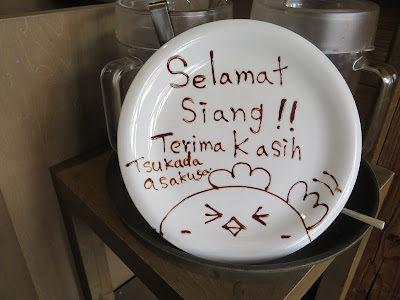 Selamat
Siang!!
Terima Kasih
Tsukada
asakusa